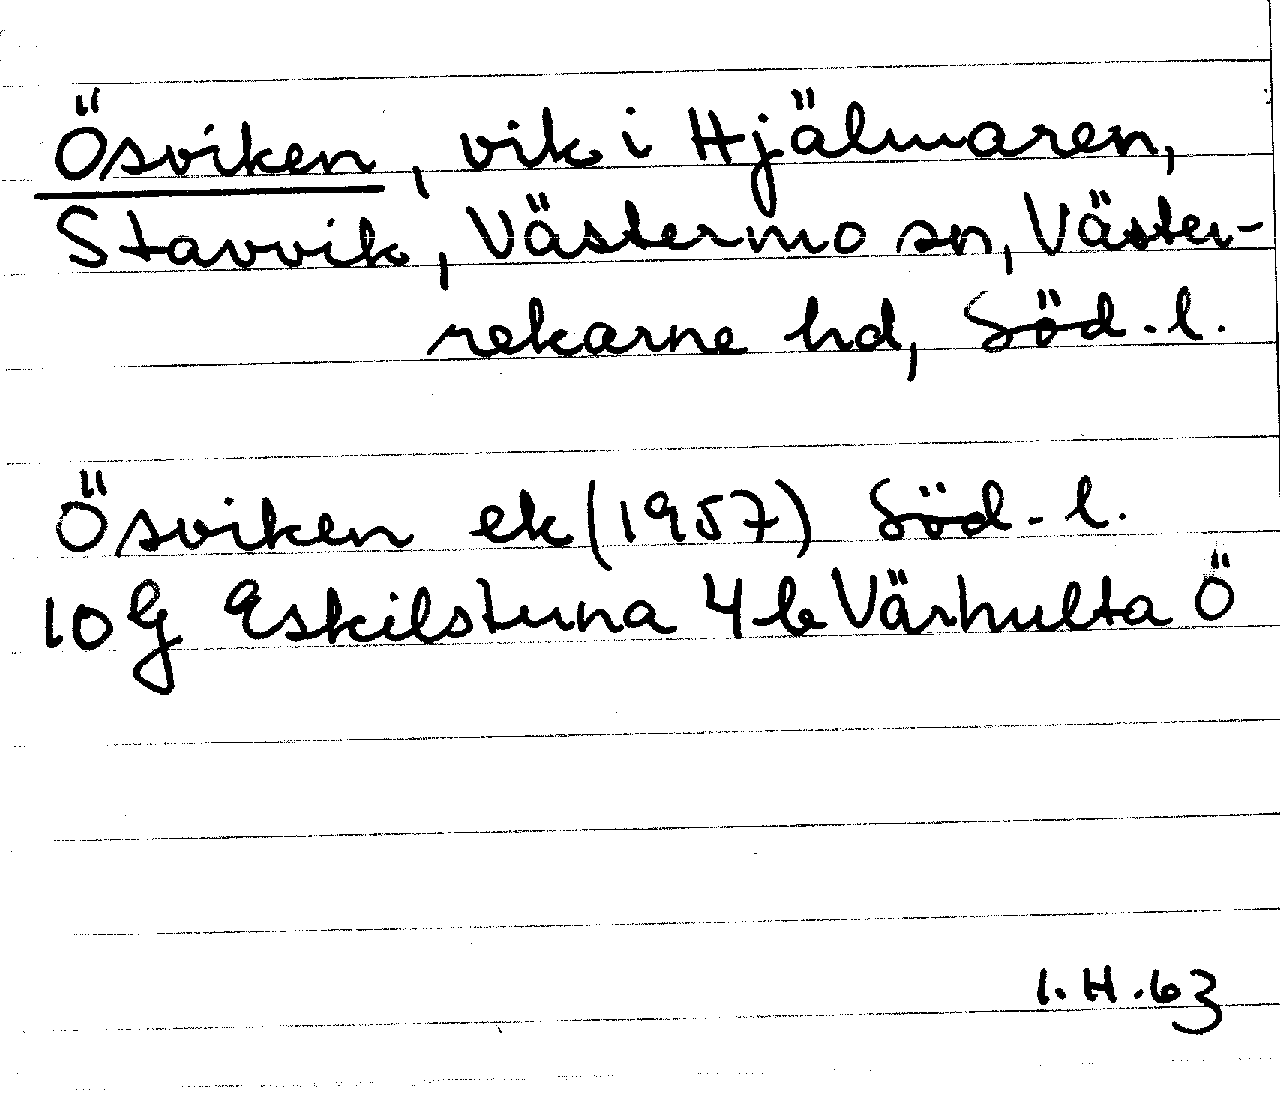 Ösviken, vik i Hjälmaren,
Stavvik, Västermo sn, Väster-
rekarne hd, Söd. l.
Ösviken ek (1957) Söd. l.
10G Eskilstuna 4b Värhulta Ö
I. H. 63